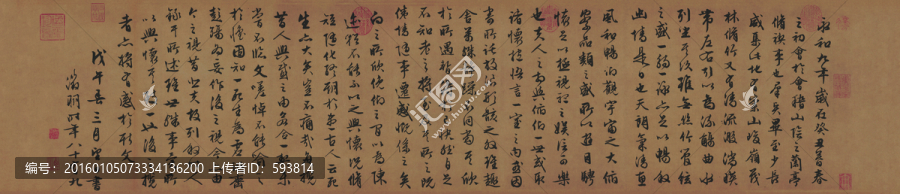 永和九年歲在癸丑暮春
之初會於會稽山陰之蘭亭
脩禊事也羣賢畢至少長
咸集此地有崇山峻嶺茂
林脩竹又有清流激湍暎
帶左右引以為流觴曲水
列坐其次雖無絲竹管弦
之盛一觴一詠亦足以暢敘
幽情是日也天朗氣清惠
風和暢仰觀宇宙之大俯
察品類之盛所以遊目騁
懷足以極視聽之娛信可樂
也夫人之相與俯仰一世或取
諸懷抱悟言一室之內或因
寄所託放浪形骸之外雖趣
舍萬殊靜躁不同當其欣
於所遇暫得於己快然自足
不知老之將至及其所之既
倦情隨事遷感慨係之矣
向之所欣俛仰之間以為陳
迹猶不能不以之興懷況脩
短隨化終期於盡古人云死
生亦大矣豈不痛哉每攬
昔人興感之由若合一契未
嘗不臨文嗟悼不能喻之
於懷固知一死生為虛誕齊
彭殤為妄作後之視今亦由
今之視昔悲夫故列敘時人
錄其所述雖世殊事異所
以興懷其致一也後之攬
者亦將有感於斯文
戊午春三月書
徵明時年八十九
编号：20160105073334136200 上传者ID：593814